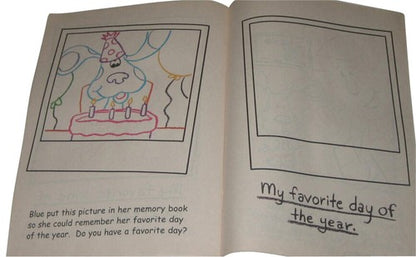 Blue put this picture in her memory book
so she could remember her favorite day
of the year. Do you have a favorite day?
My favorite day of
the year.